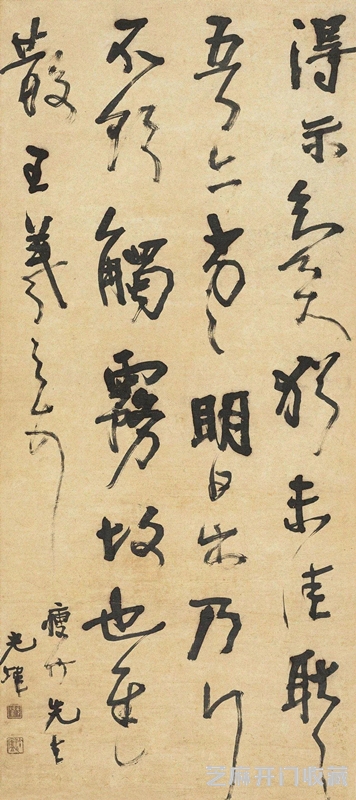 得示知足下猶未佳耿耿
吾亦劣劣明日出乃行
不欲觸霧故也遲
散王羲之頓首
瘦竹先生
光煒
芝麻开门收藏